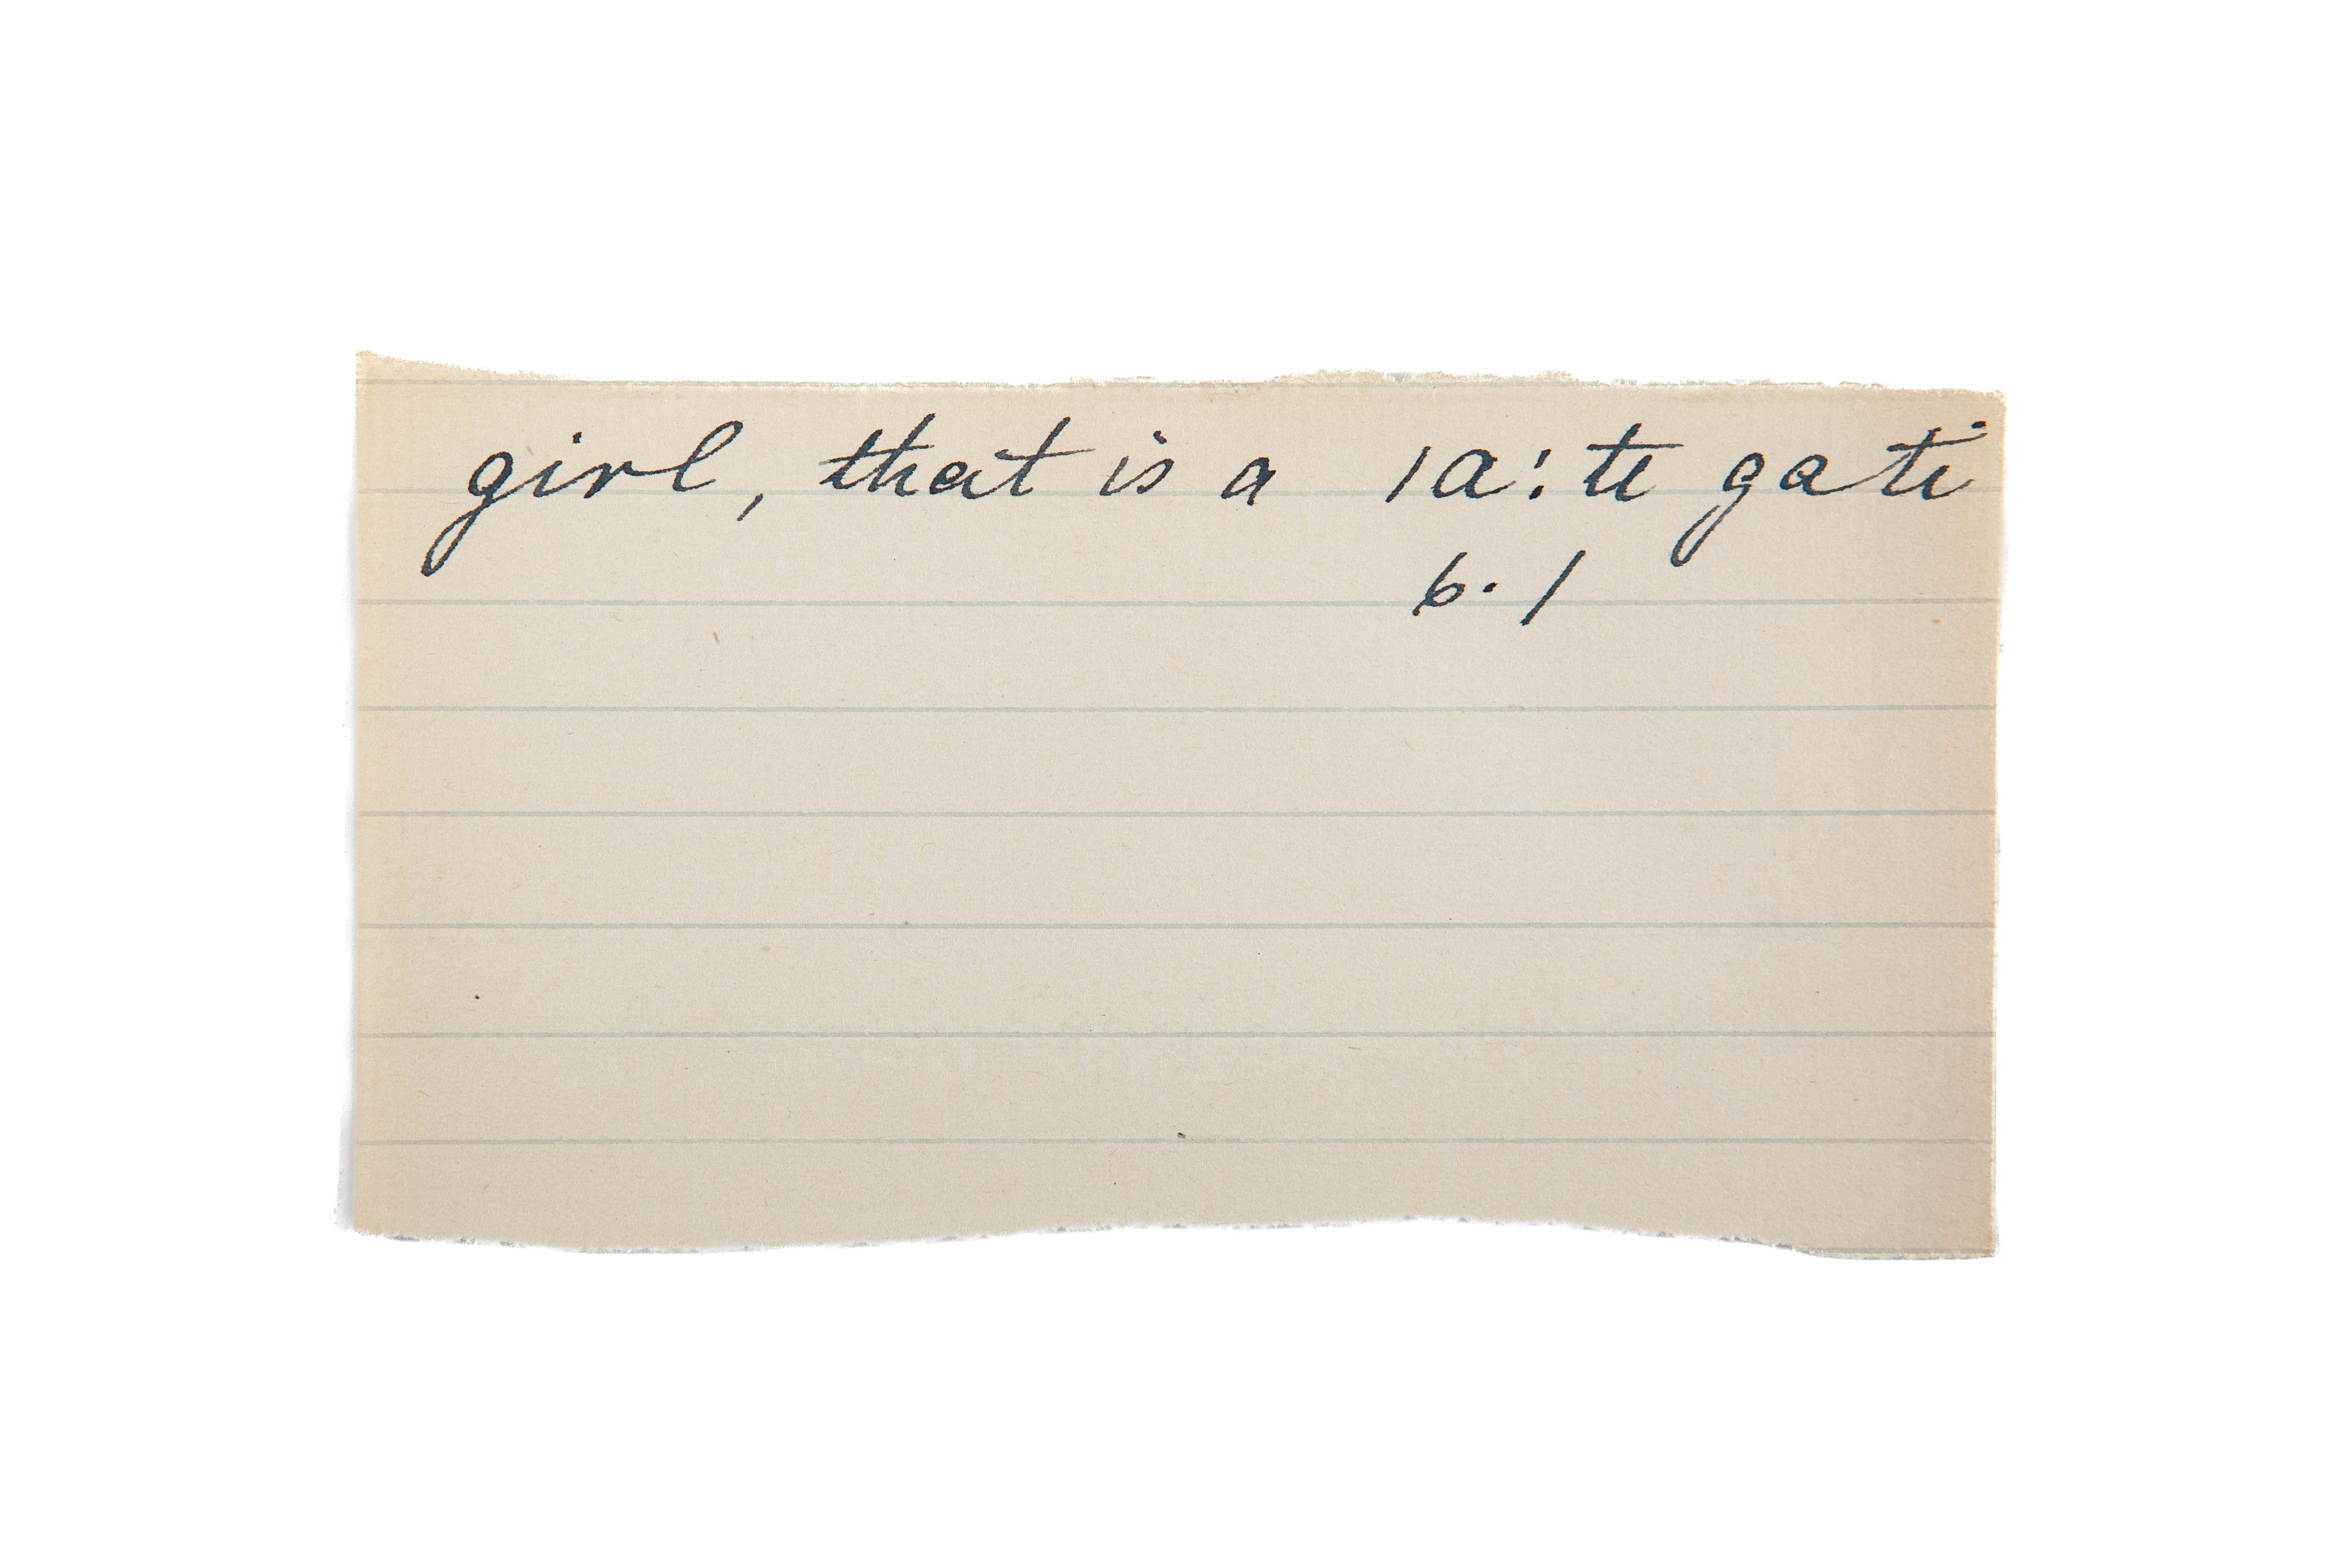 girl, that is a 1a:te gati
6. 1